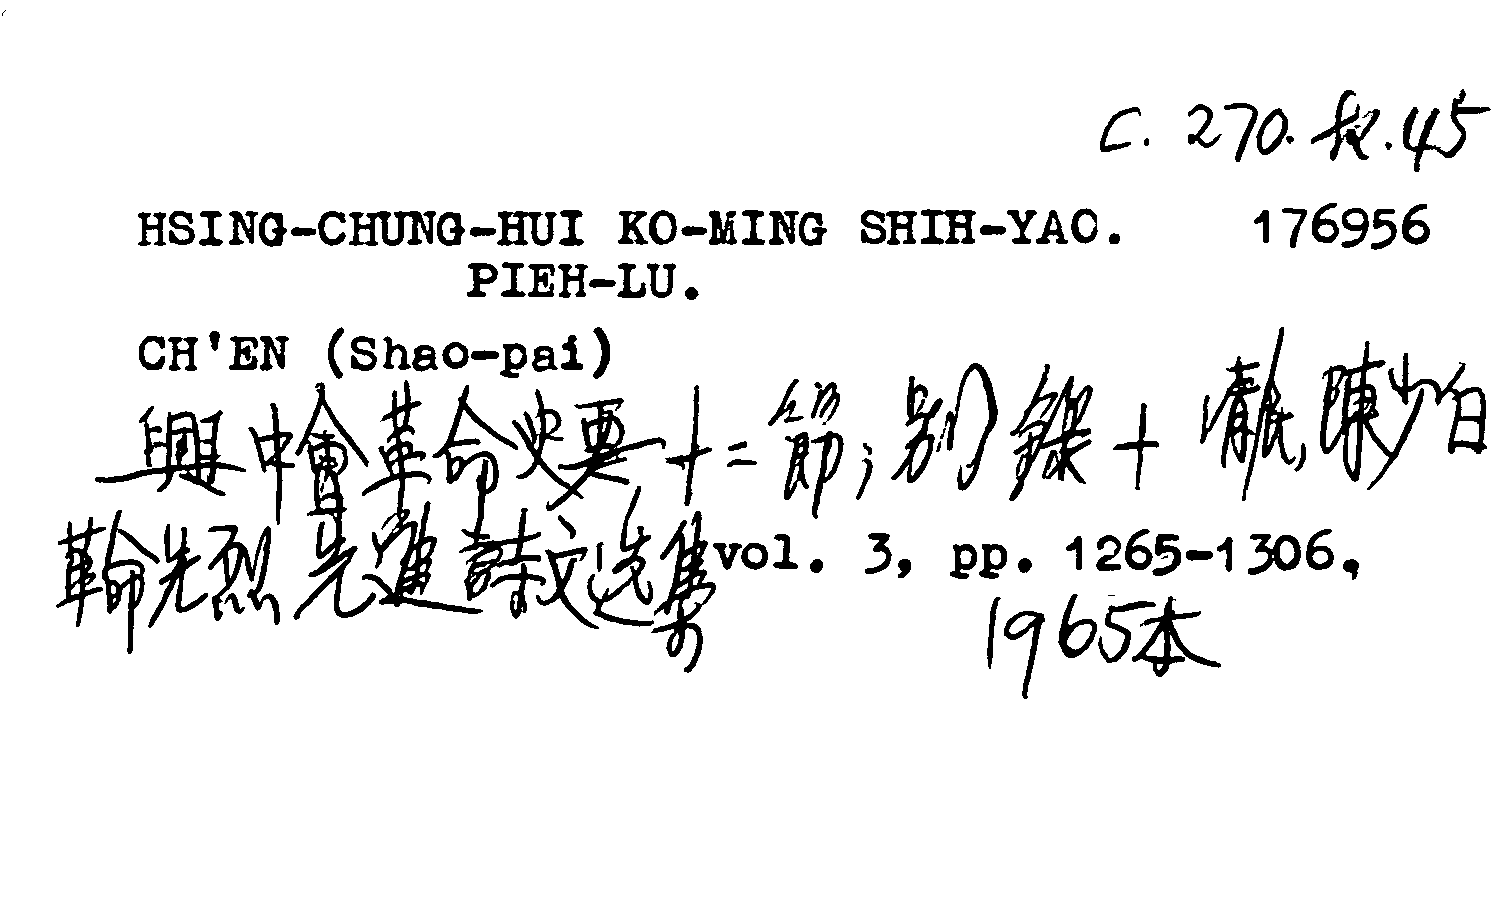 C. 270. .45
HSING-CHUNG-HUI KO-MING SHIH-YAO. 176956
PIEH-LU.
CH'EN (Shao-pai)
興中會革命史要十二節;別錄十 陳少白
革命先烈先進詩文选集 vol. 3, pp. 1265-1306.
1965本